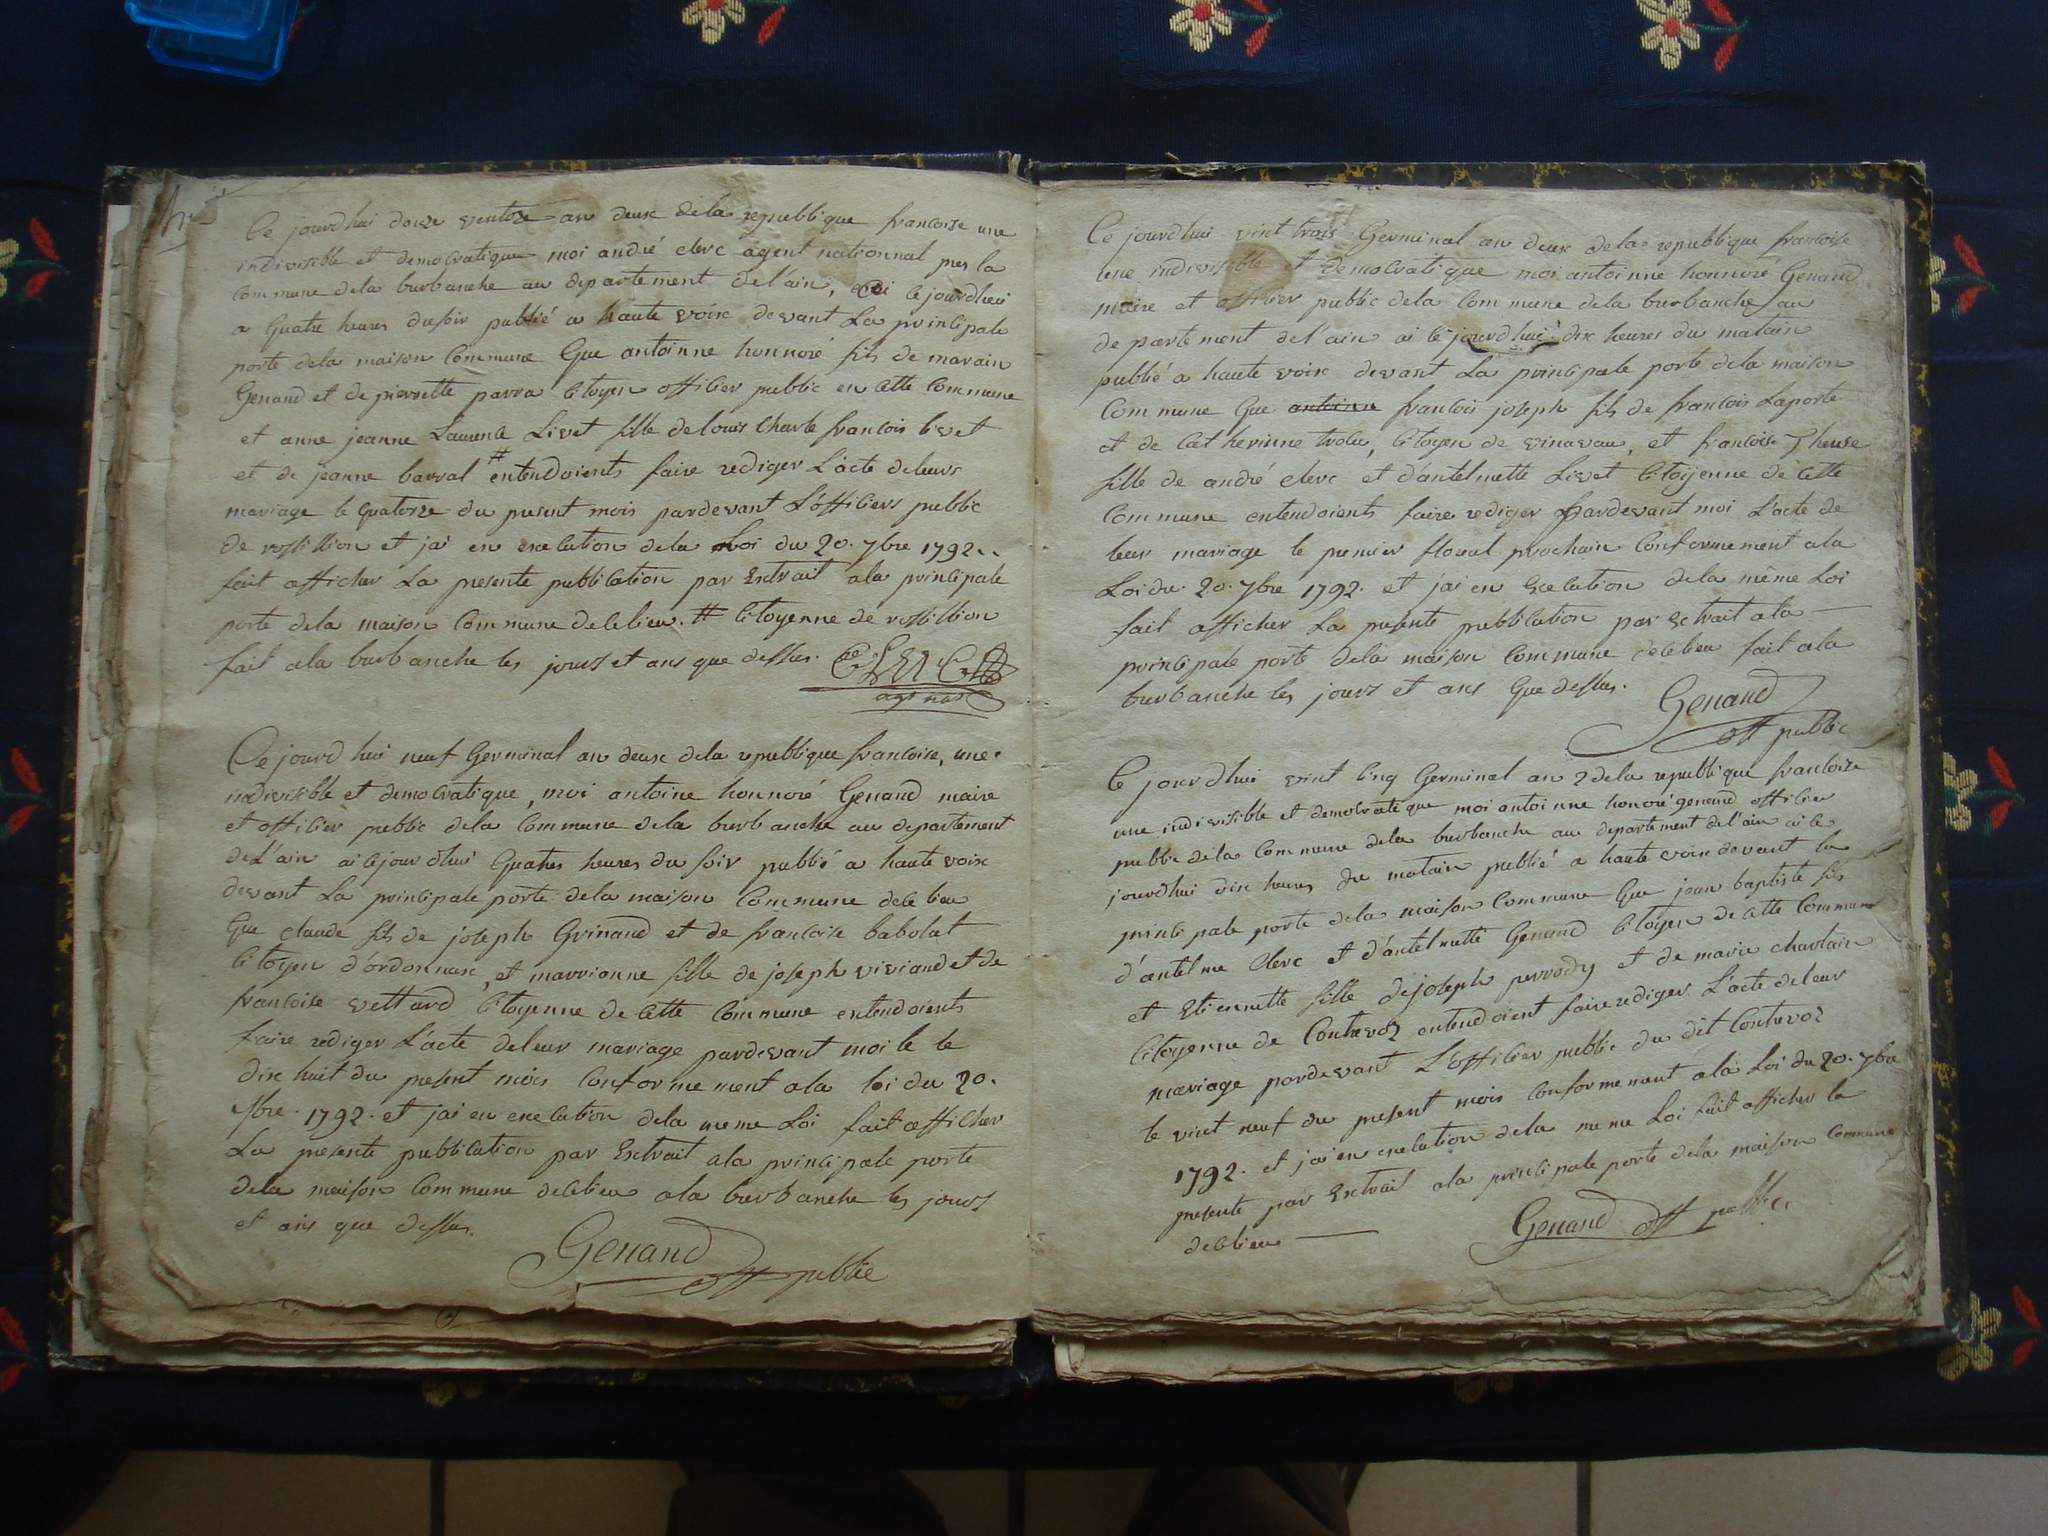 Ce jourdhui douze ventose an deux dela republique francoise une
indivisible et democratique moi andré clerc agent nationnal pres la
commune dela burbanche au departement del'ain, ai ce jourdhui
a quatre heures dusoir publié a haute voix devant La principale
porte dela maison commune que antoinne honnoré fils de
Genand et de pierrette parra citoyen officier public en cette commune
et anne jeanne Laurence Livet fille delouis charle francois livet
et de jeanne barral # entendoients faire rediger L'acte deleurs
mariage le quatorze du present mois pardevant L'officiers public
de rossillion et jai en execution dela Loi du 20. 7bre 1792..
fait afficher La presente publication par Extrait ala principale
porte dela maison commune delelieu. # citoyenne de rossillion
fait ala burbanche les jours et ans que dessus. CLERC
agt nat
Ce jourdhui neuf Germinal an deux dela republique francoise, une
indivisible et democratique, moi antoine honnoré Genand maire
et officier public dela commune dela burbanche au departement
del'ain ai cejourdhui quatres heures du soir publié a haute voix
devant La principale porte dela maison commune dece lieu
que claude fils de joseph Grinand et de francoise babolat
citoyen d'ordonnax, et marrianne fille de joseph viviand et de
francoise vettard citoyenne de cette commune entendoients
faire rediger L'acte deleur mariage pardevant moi le le
dix huit du present mois conformement ala loi du 20.
7bre. 1792. et jai en execution dela meme Loi fait afficher
La presente publication par Extrait ala principale porte
dela maison commune decelieu ala burbanche les jours
et ans que dessus.
Genand
off public
Ce jourdhui vint trois Germinal an deux dela republique francoise
une indivisible et democratique moi antoinne honnoré Genand
maire et officier public dela commune dela burbanche au
departement del'ain ai ce jourdhui dix heures du matain
publié a haute voix devant La principale porte dela maison
commune que antoinne francois joseph fils de francois Laporte
et de catherinne trolu, citoyen de virieu, et francoise Therese
fille de andré clerc et d'antelmette Livet citoyenne de cette
commune entendoients faire rediger Pardevant moi L'acte de
leur mariage le premier floreal prochain conformement ala
Loi du. 20. 7bre 1792. et jai en Execution dela même Loi
fait afficher La presente publication par Extrait ala
principale porte dela maison commune decelieu fait ala
burbanche les jours et ans que dessus.
Genand
off public
Ce jourdhui vint cinq Germinal an 2 dela republique francoise
une indivisible et democratique moi antoinne honoré genand officier
public dela commune dela burbanche au departement del'ain ai ce
jourdhui dix heures du matain publié a haute voix devant la
principale porte dela maison commune que jean baptiste fils
d'antelme Clerc et d'antelmette Genand citoyen de cette commune
et Etiennette fille dejoseph perrody et de marie charlain
citoyenne de Contrevoz entendoient faire rediger L'acte deleur
mariage pardevant L'officier public du dit Contrevoz
le vint neuf du present mois conformement ala Loi du 20. 7bre
1792. et jai en execution dela meme Loi fait afficher la
presente par Extrait ala principale porte dela maison commune
decelieu
Genand off public